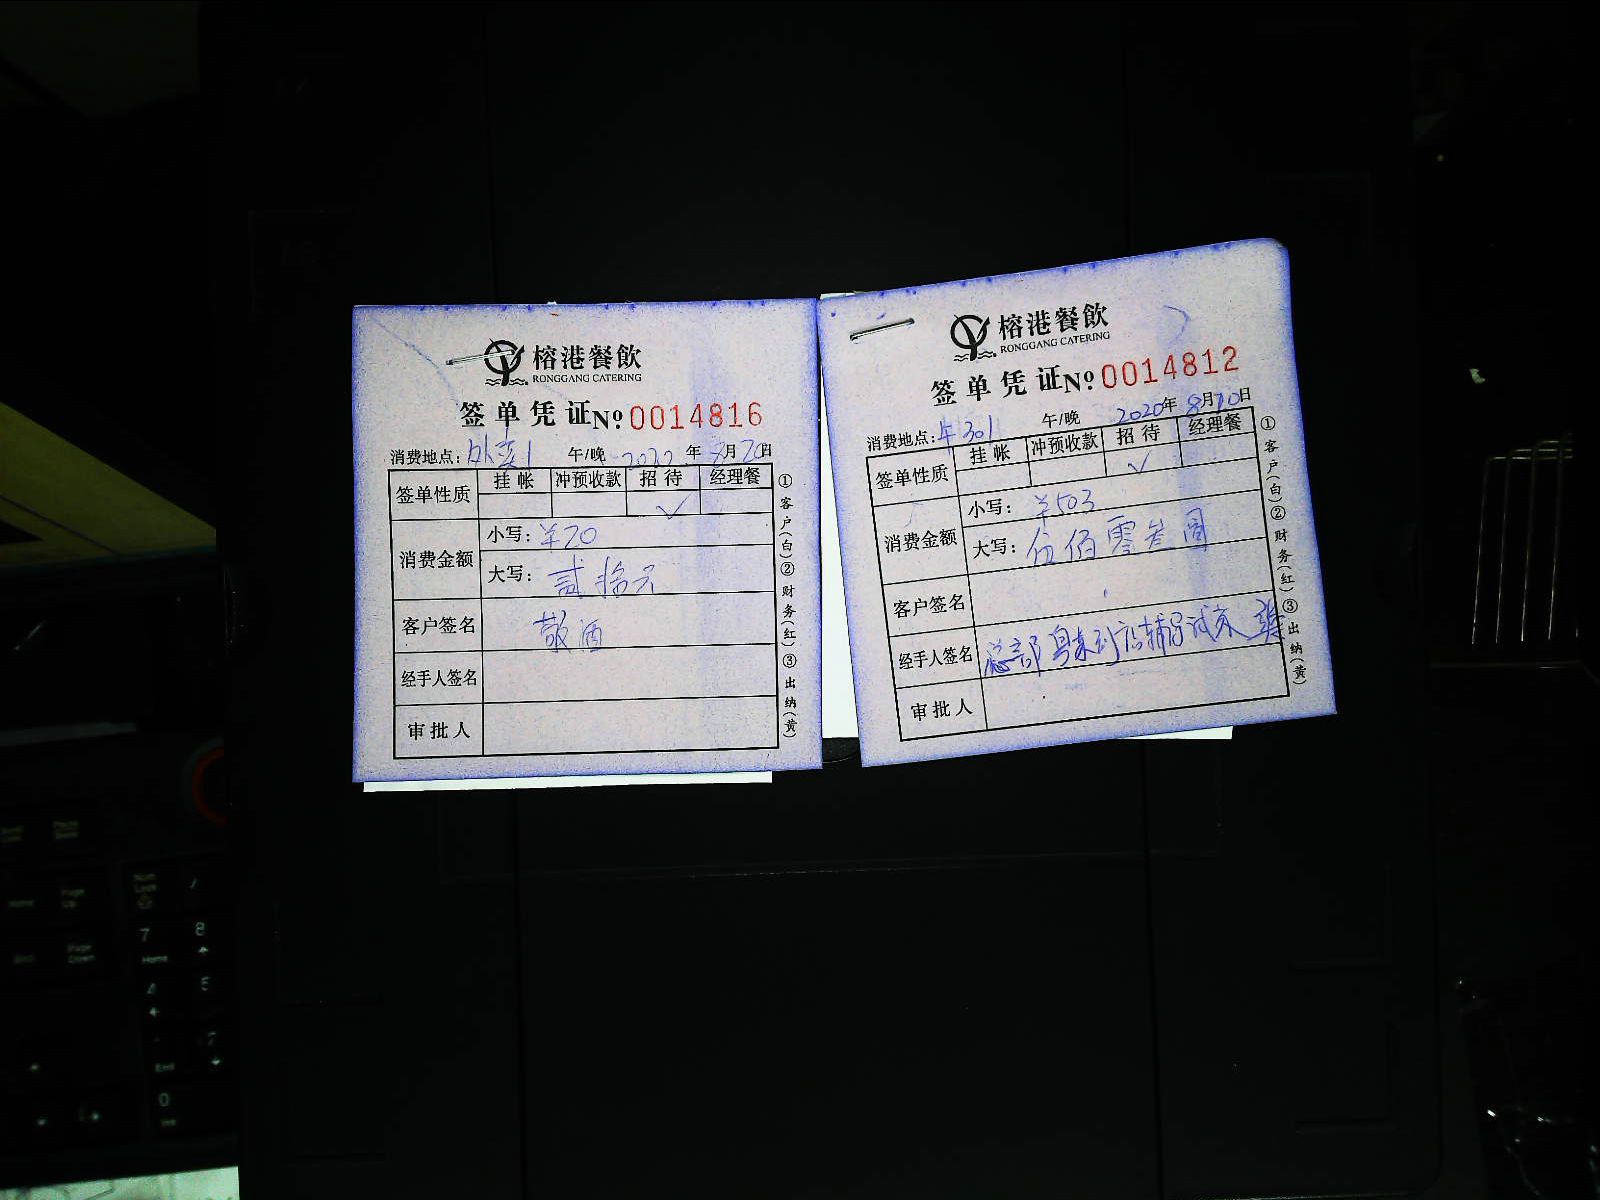 榕港餐飲
RONGGANG CATERING
签单凭证№0014816
消费地点: 外卖1 午/晚 2020年 8月20日
签单性质 挂帐 冲预收款 招待 经理餐
✓
消费金额
小写: ¥20
大写: 贰拾元
客户签名 敬酒
经手人签名
审批人
①客户(白)②财务(红)③出纳(黄)
榕港餐飲
RONGGANG CATERING
签单凭证№0014812
消费地点: 午301 午/晚 2020年8月20日
签单性质 挂帐 冲预收款 招待 经理餐
✓
消费金额
小写: ¥503
大写: 伍佰零叁圆
客户签名
经手人签名 总部 到店辅导试菜
审批人
①客户(白)②财务(红)③出纳(黄)
7
Home
8
4
5
End
0
Ins
Page
Up
Page
Down
Home
End
Num
Lock